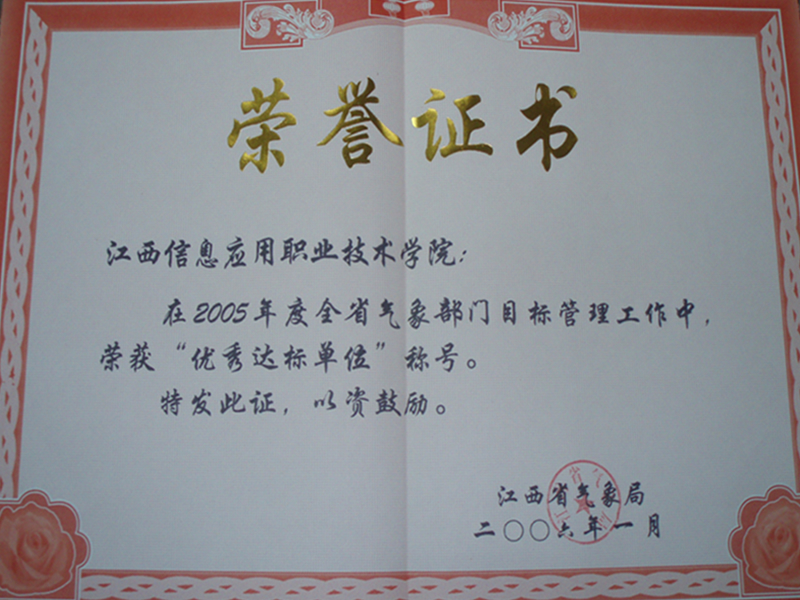 荣誉证书
江西信息应用职业技术学院：
在2005年度全省气象部门目标管理工作中，
荣获“优秀达标单位”称号。
特发此证，以资鼓励。
江西省气象局
二〇〇六年一月